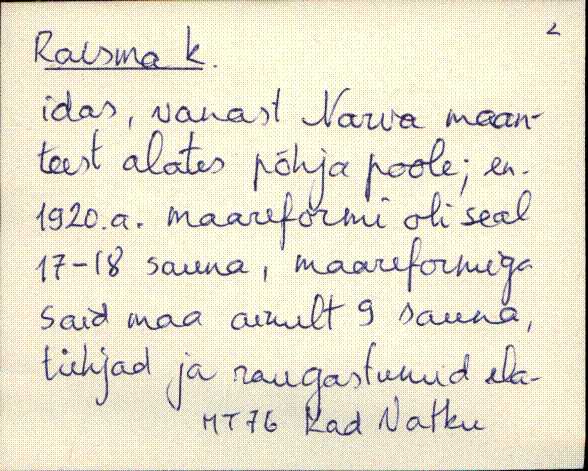 2
Raesma k.
idas, vanast Narva maan-
teest alates põhja poole; en.
1920.a. maareformi oli seal
17-18 sauna, maareformiga
said maa ainult 9 sauna,
tühjad ja raugastunud ela-
MT76 Kad Natku